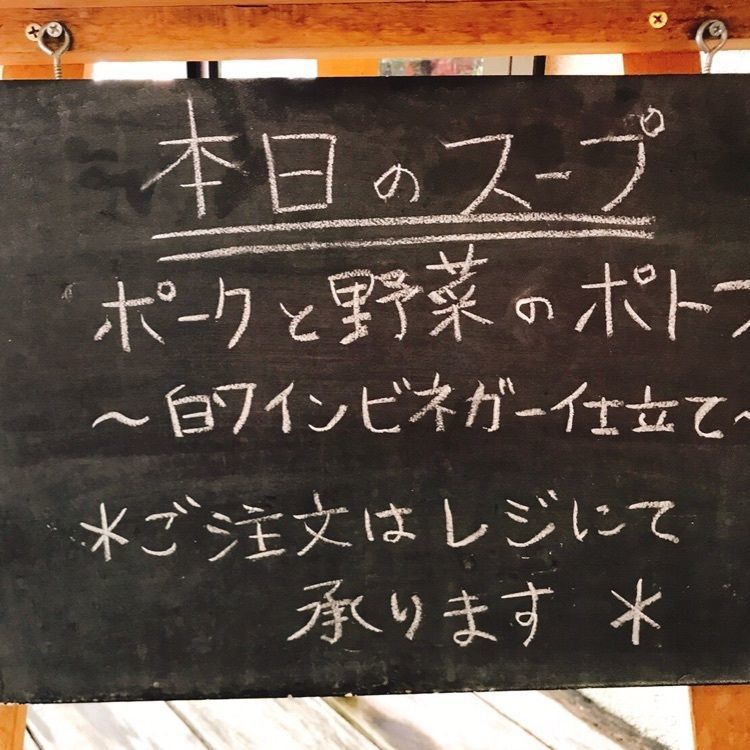 本日のスープ
ポークと野菜のポトフ
～白ワインビネガー仕立て～
＊ご注文はレジにて
承ります ＊